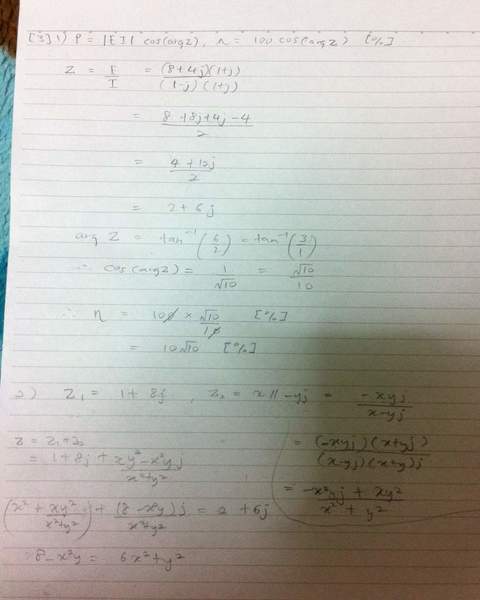 [3] 1) P = |E||I| cos(arg Z), n = 100 cos(arg Z) [%]
Z = E/I = (8+4j)(1+j)/(1-j)(1+j)
= 8+8j+4j-4/2
= 4+12j/2
= 2+6j
arg Z = tan⁻¹(6/2) = tan⁻¹(3/1)
∴ cos(arg Z) = 1/√10 = √10/10
∴ n = 100 × √10/10 [%]
= 10√10 [%]
2) Z₁ = 1+8j, Z₂ = x // -yj = -xyj/x-yj
= (-xyj)(x+yj)/(x-yj)(x+yj)
= -x²yj + xy²/x² + y²
Z = Z₁+Z₂
= 1+8j + xy²-x²yj/x²+y²
+ (8-x²y)j/x²+y² = 2+6j
8-x²y = 6x²+y²